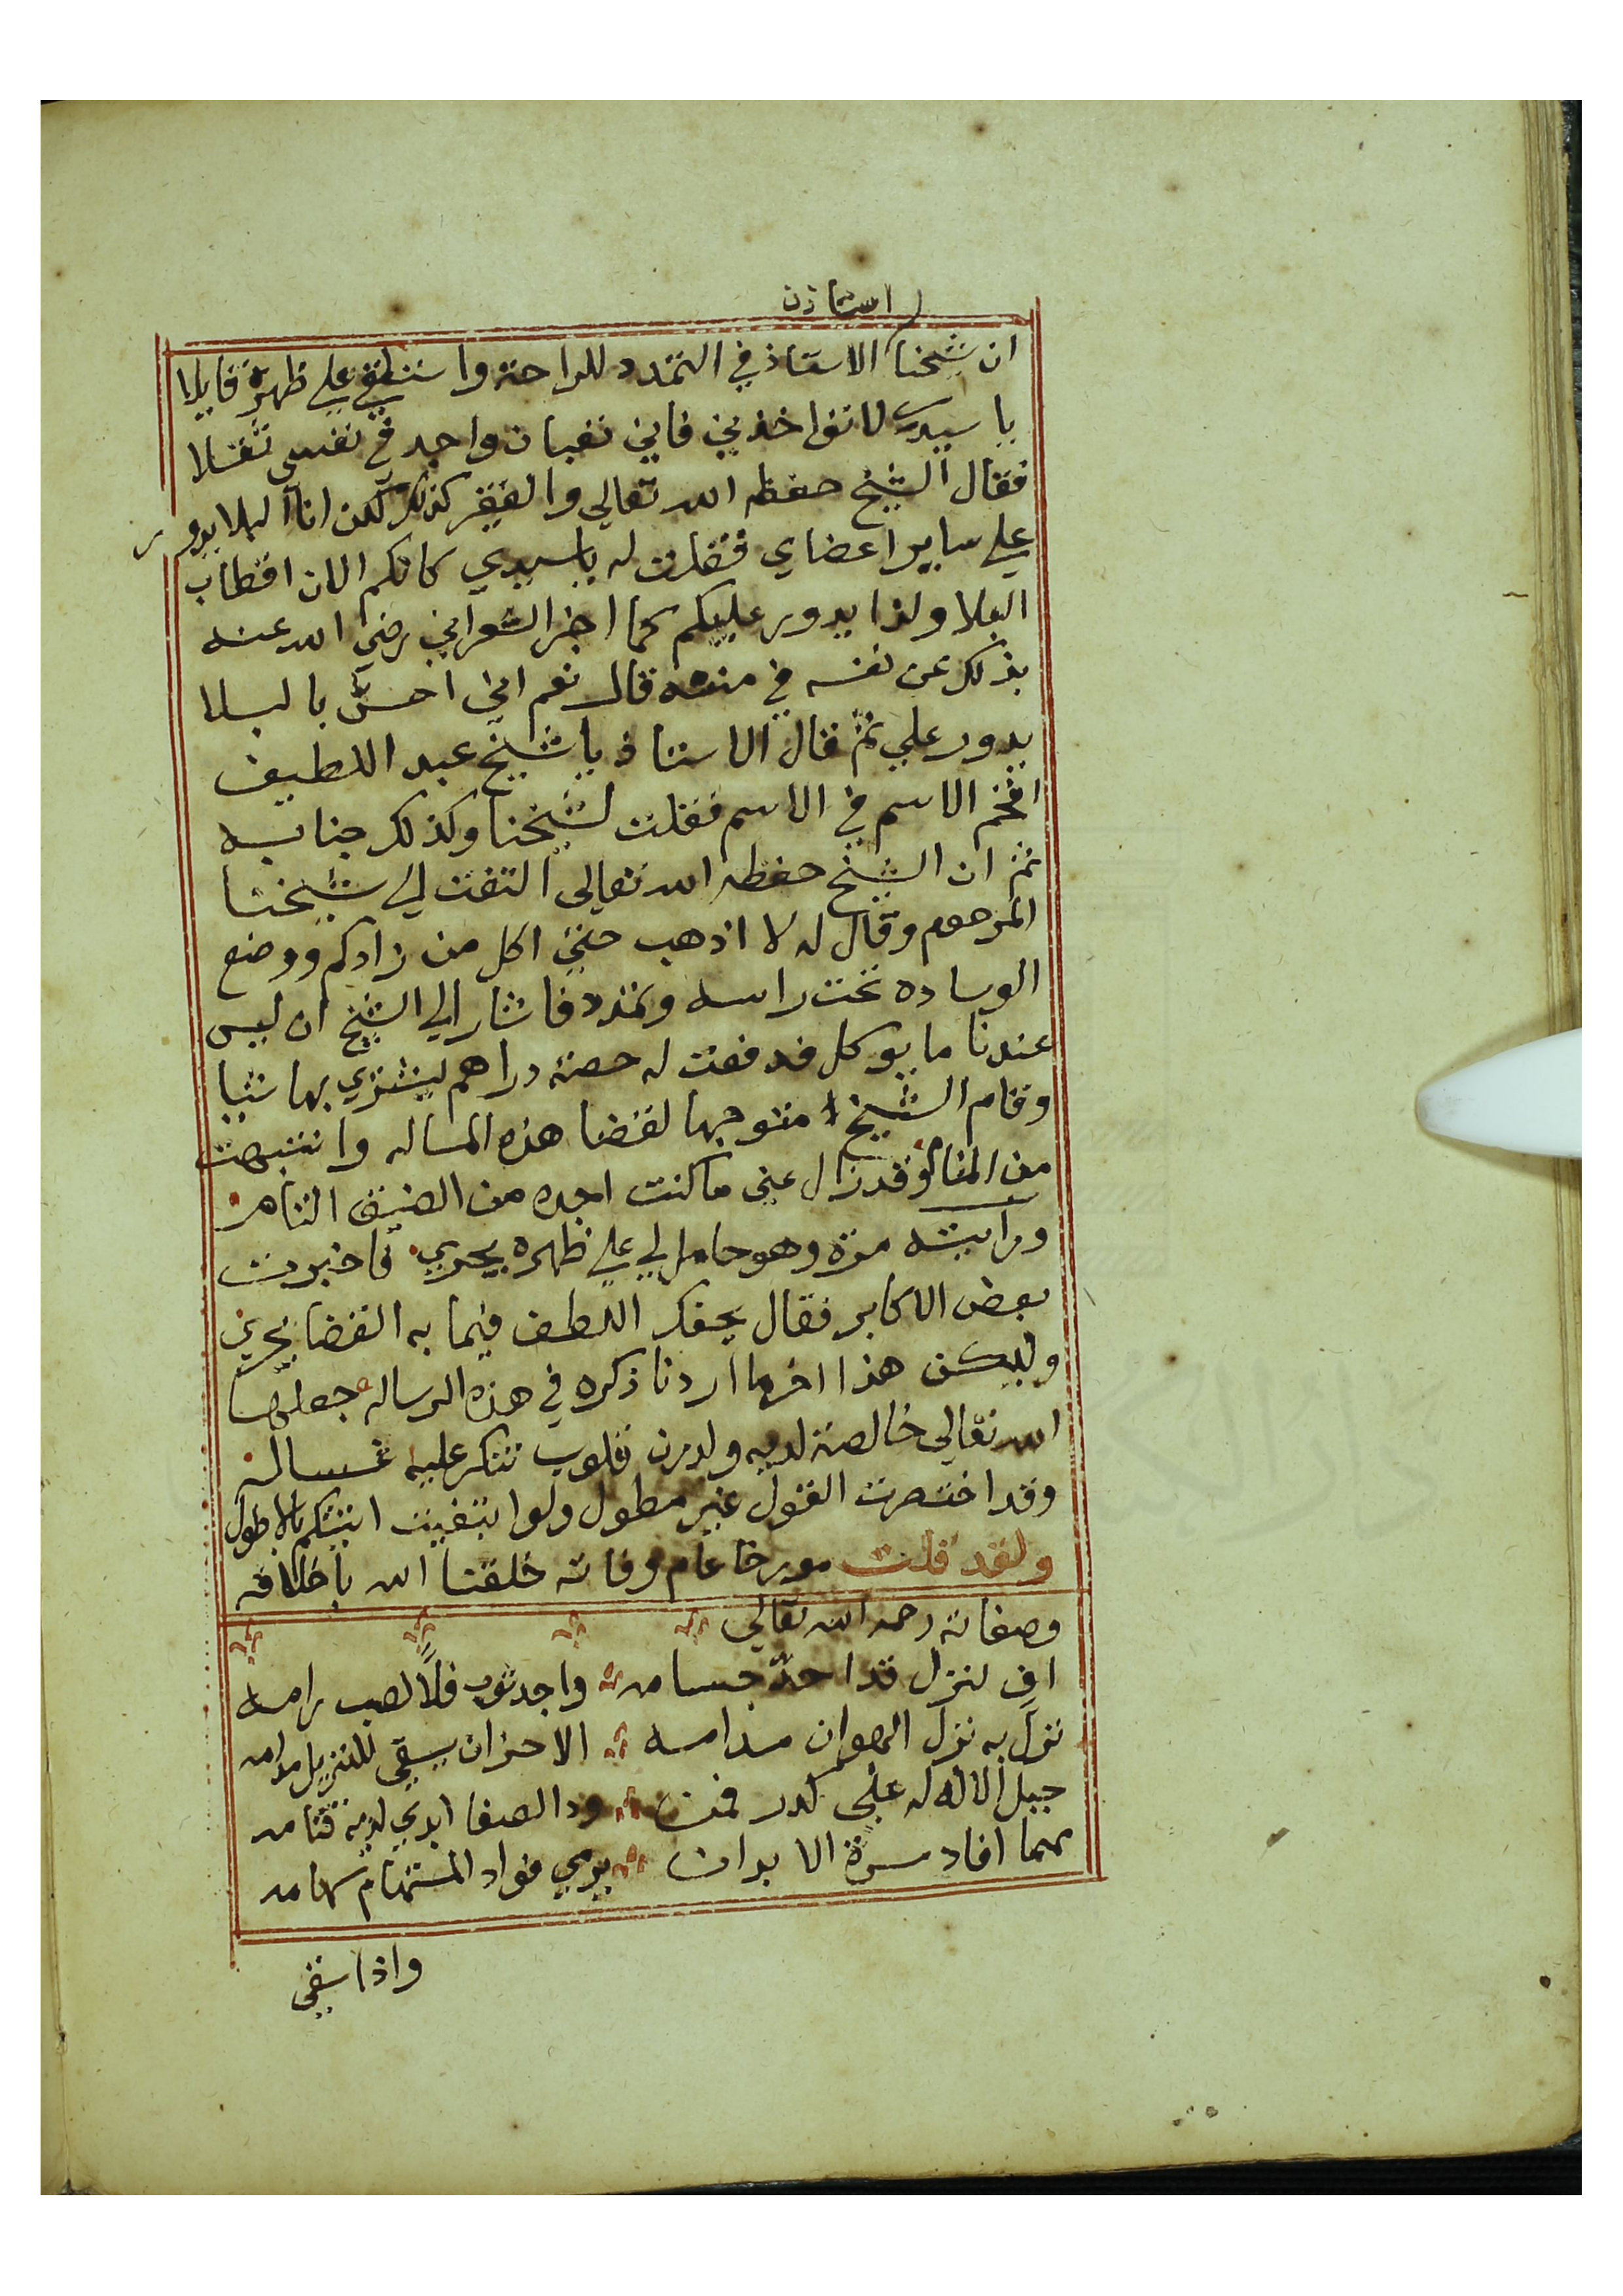 استاذن
ان شيخنا الاستاذ في التمدد للراحة واستلقي علي ظهره قايلا
يا سيدي لا تواخذني فاني تعبان واجد في نفسي ثقلا
فقال الشيخ حفظه الله تعالي والفقير كذلك لكن انا البلا يدور
علي ساير اعضاي فقلت له يا سيدي كانكم الان اقطاب
البلا ولذا يدور عليكم كما اخبر الشعراني رضي الله عنه
بذلك عن نفسه في مننه قال نعم اني احس بالبلا
يدور علي ثم قال الاستاذ يا شيخ عبد اللطيف
افخم الاسم في الاسم فقلت لشيخنا وكذلك جنابه
ثم ان الشيخ حفظه الله تعالي التفت الي شيخنا
المرحوم وقال له لا اذهب حتي اكل من زادكم ووضع
الوساده تحت راسه وتمدد فاشار الي الشيخ ان ليس
عندنا ما يوكل فدفعت له حصة دراهم ليشتري بها شيا
وقام الشيخ متوجها لقضا هذه المساله وانتبهت
من المنام وقد زال عني ما كنت اجده من الضيق التام
ورايته مرة وهو حامل لي علي ظهره يجري فاخبرت
بعض الاكابر فقال يحفك اللطف فيما به القضا يجري
وليكن هذا اخر ما اردنا ذكره في هذه الرساله جعلها
الله تعالي خالصة لديه ولدرن قلوب تنكر عليه غساله
وقد اختصرت القول غير مطول ولو ابتغيت اتيتكم بالاطول
ولقد قلت مورخا عام وفاته خلقنا الله باخلاقه
وصفاته رحمه الله تعالي
اف لنزل قد احد حسامه واجد ثوب فلا لصب رامه
نزل به نزل الهوان مدامه الاحزان يسقي للنزيل مدامه
جبل الاله له علي كدر فمن ود الصفا ابدي لديه قتامه
مهما افاد مسرة الا بدات يرمي فواد المستهام سهامه
واذا سقي